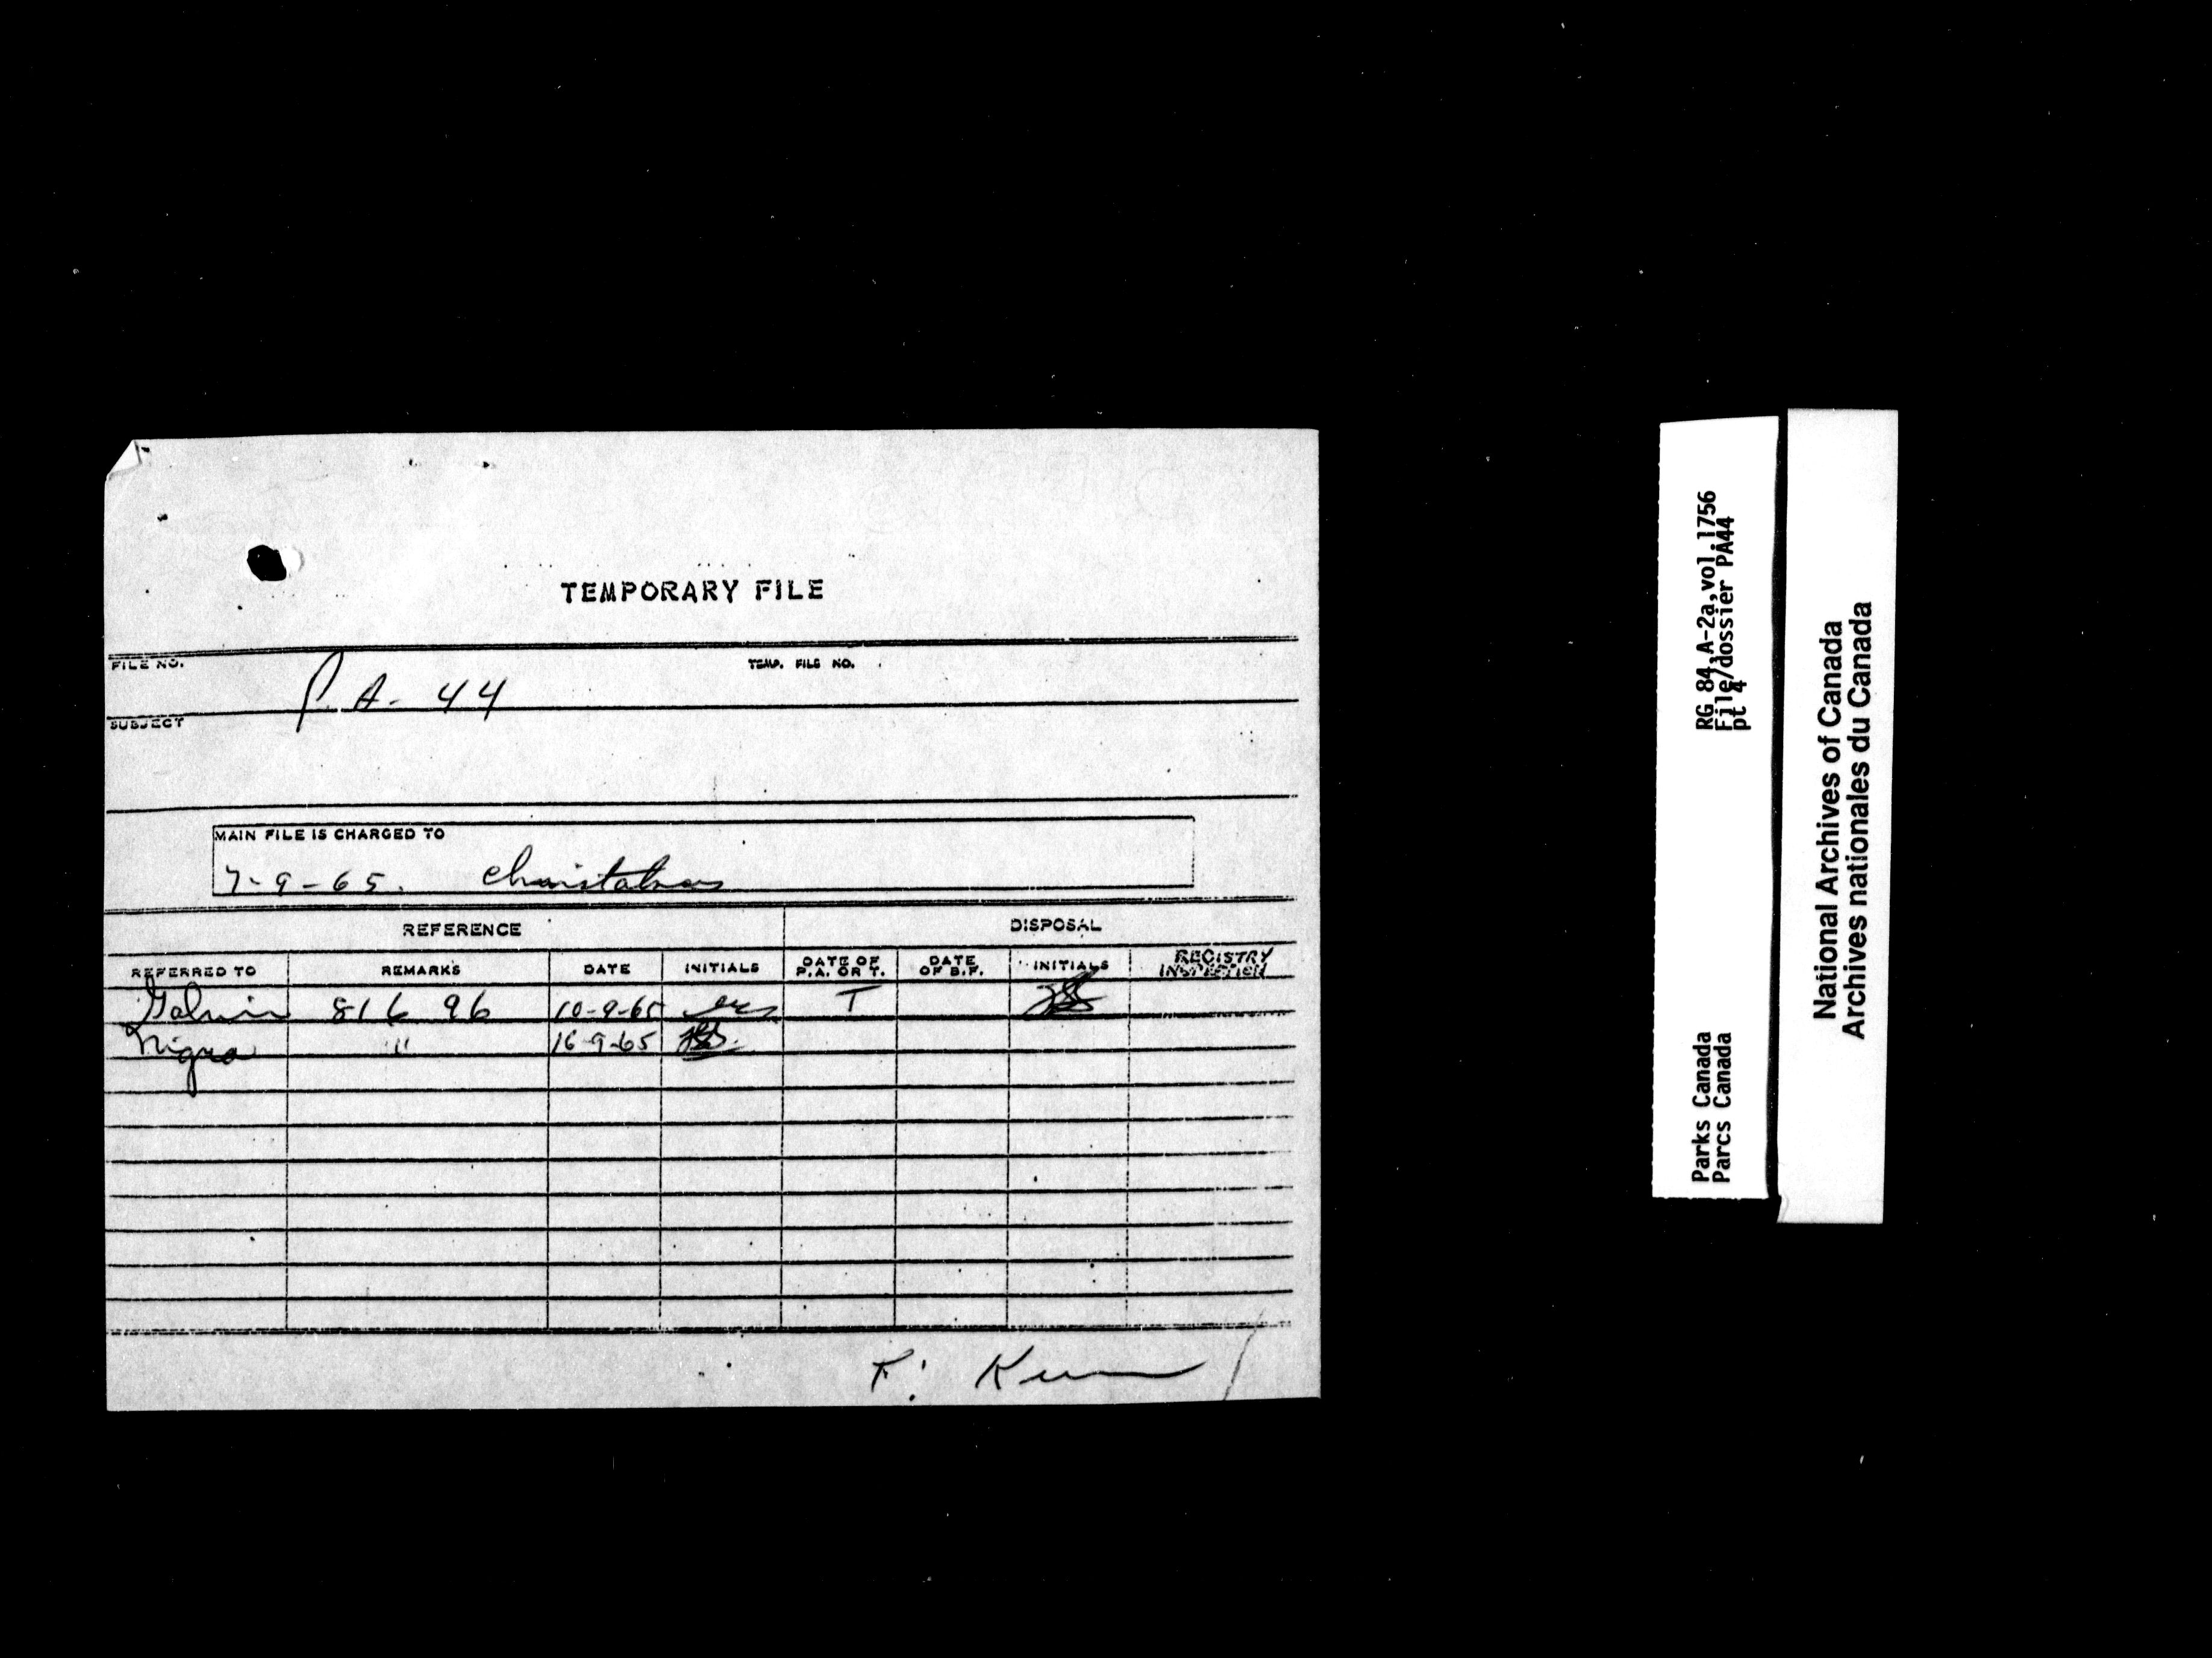 TEMPORARY FILE
FILE NO. P.A. 44 TEMP. FILE NO.
SUBJECT
MAIN FILE IS CHARGED TO
7-9-65.
REFERENCE DISPOSAL
REFERRED TO REMARKS DATE INITIALS DATE OF P.A. OR T. DATE OF B.F. INITIALS REGISTRY INSPECTION
Galvin 816 96 10-9-65 T
Nigra " 16-9-65
F.
RG 84,A-2a,vol.1756
File/dossier PA44
pt 4
Parks Canada
Parcs Canada
National Archives of Canada
Archives nationales du Canada